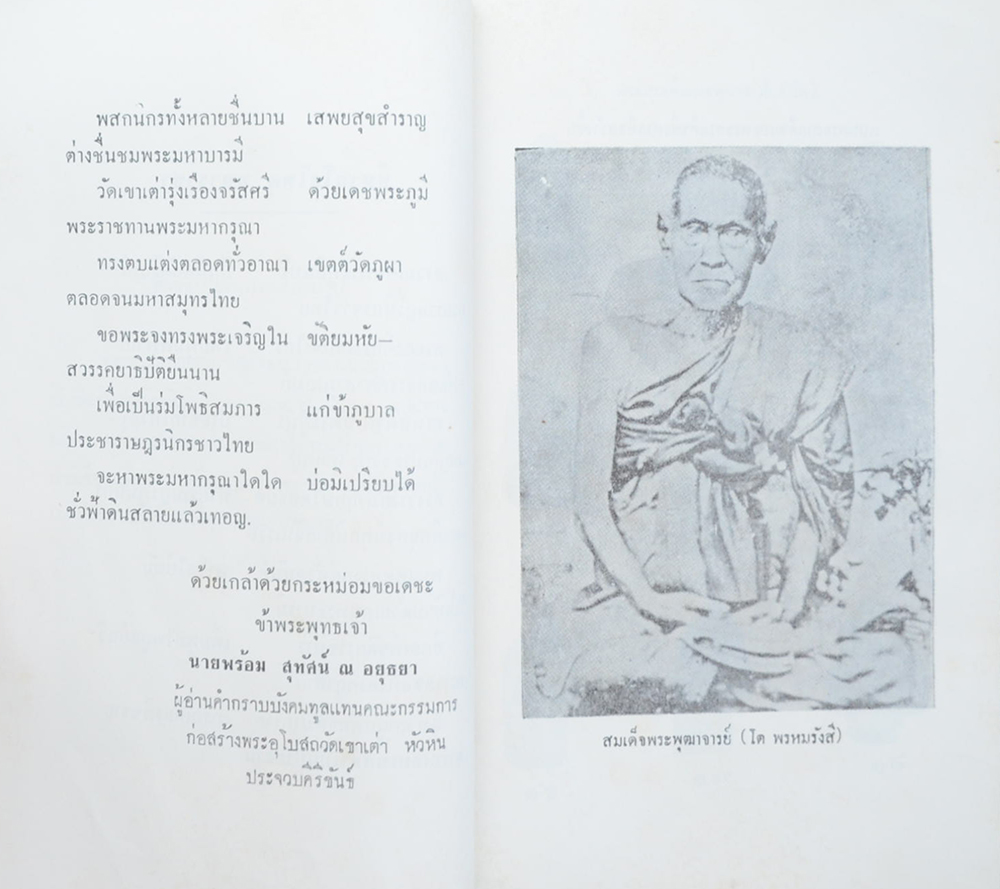 พสกนิกรทั้งหลายชื่นบาน เสพยสุขสำราญ
ต่างชื่นชมพระมหาบารมี
วัดเขาเต่ารุ่งเรืองจรัสศรี ด้วยเดชพระภูมี
พระราชทานพระมหากรุณา
ทรงตบแต่งตลอดทั่วอาณา เขตต์วัดภูผา
ตลอดจนมหาสมุทรไทย
ขอพระจงทรงพระเจริญใน ขัติยมหัย—
สวรรคยาธิปัติยืนนาน
เพื่อเป็นร่มโพธิสมภาร แก่ข้าภูบาล
ประชาราษฎรนิกรชาวไทย
จะหาพระมหากรุณาใดใด บ่อมิเปรียบได้
ชั่วฟ้าดินสลายแล้วเทอญ.
ด้วยเกล้าด้วยกระหม่อมขอเดชะ
ข้าพระพุทธเจ้า
นายพร้อม สุทัศน์ ณ อยุธยา
ผู้อ่านคำกราบบังคมทูลแทนคณะกรรมการ
ก่อสร้างพระอุโบสถวัดเขาเต่า หัวหิน
ประจวบคีรีขันธ์
สมเด็จพระพุฒาจารย์ (โต พรหมรังสี)